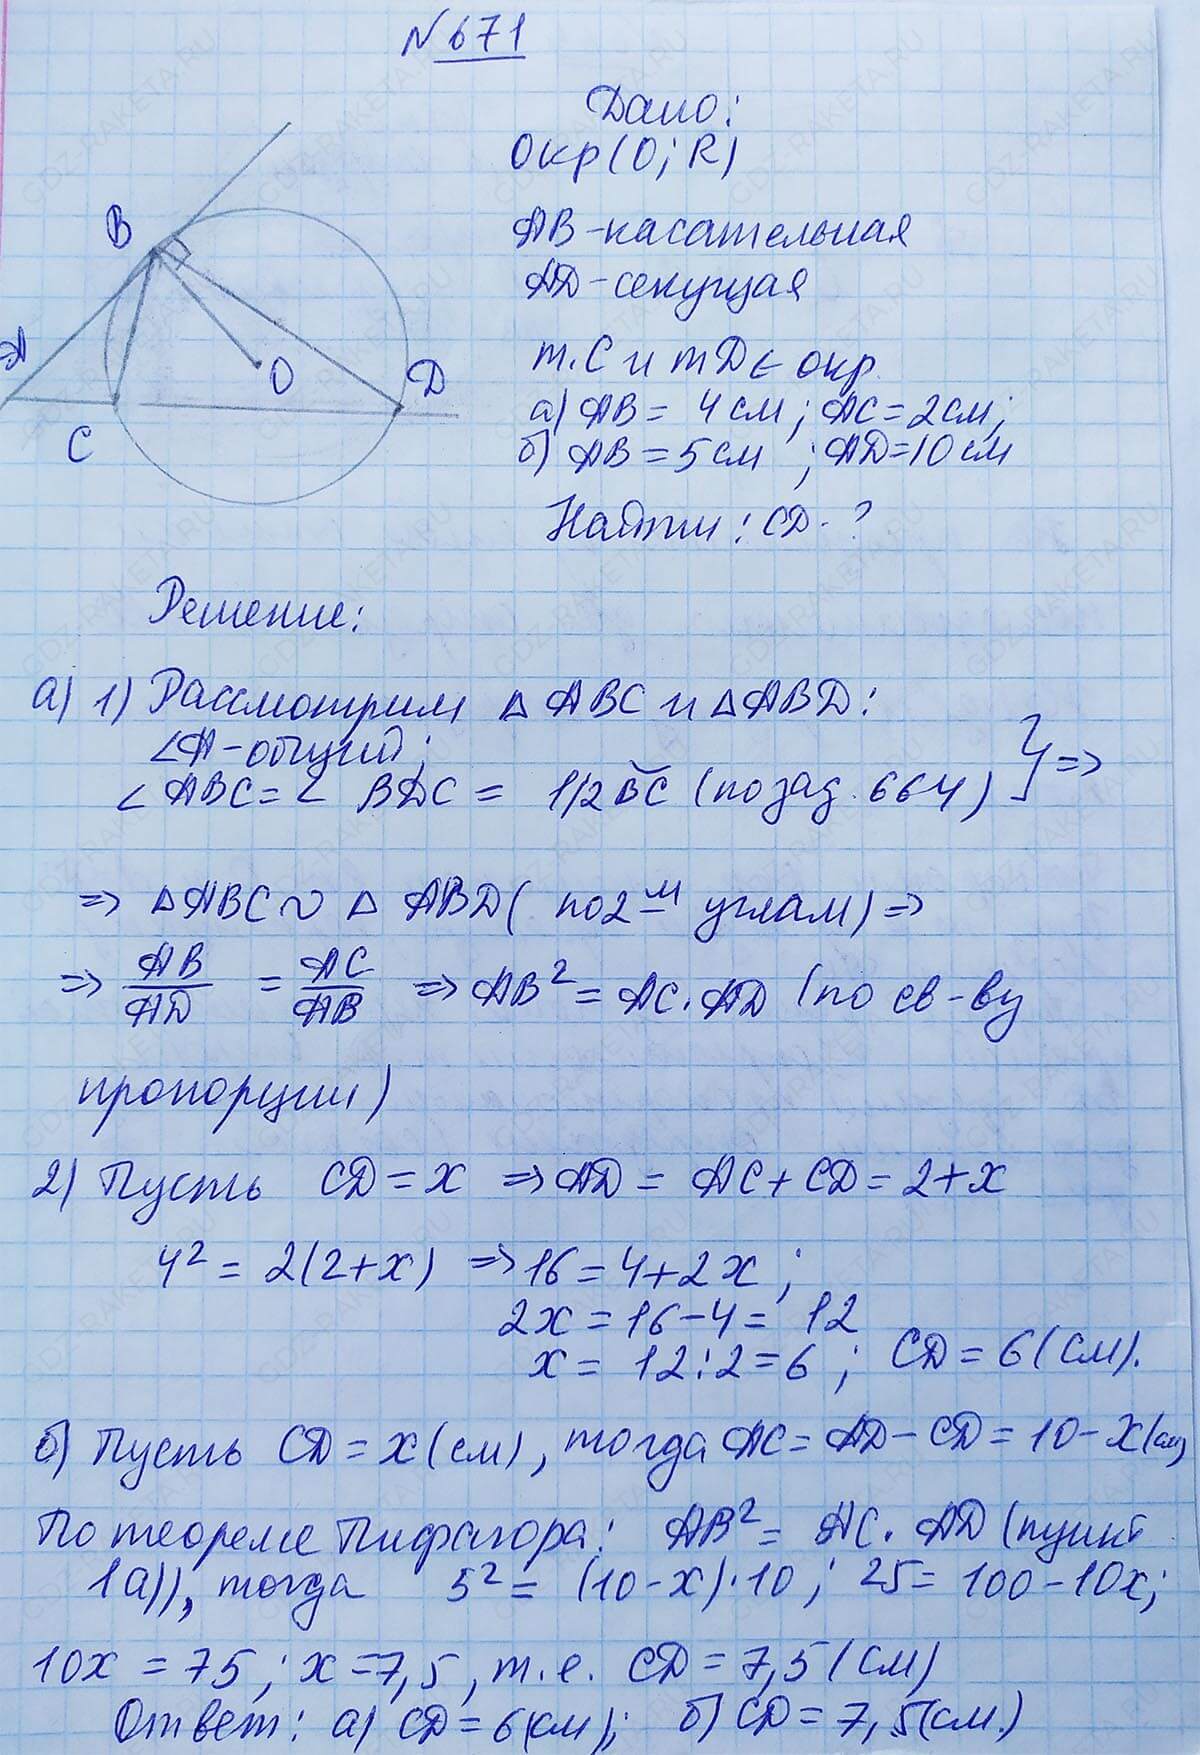 N 671
Дано:
Окр(O; R)
AB-касательная
AD-секущая
т. C и т D ∈ окр.
а) AB = 4 см; AC = 2 см;
б) AB = 5 см ; AD = 10 см
Найти: CD-?
B
A
O
D
C
Решение:
а) 1) Рассмотрим △ ABC и △ ABD:
∠A-общий;
∠ ABC = ∠ BDC = 1/2 ᴗBC (по зад. 664) } =>
=> △ ABC ~ △ ABD ( по 2-м углам) =>
=> AB/AD = AC/AB => AB² = AC · AD (по св-ву
пропорции)
2) Пусть CD = x => AD = AC + CD = 2+x
4² = 2(2+x) => 16 = 4+2x;
2x = 16-4 = 12
x = 12:2 = 6 ; CD = 6 (см).
б) Пусть CD = x (см), тогда AC = AD - CD = 10 - x (см)
По теореме Пифагора: AB² = AC · AD (пункт
1а)), тогда 5² = (10-x)·10; 25 = 100-10x;
10x = 75; x = 7,5, т.е. CD = 7,5 (см)
Ответ: а) CD = 6(см); б) CD = 7,5(см.)
GDZ-RAKETA.RU